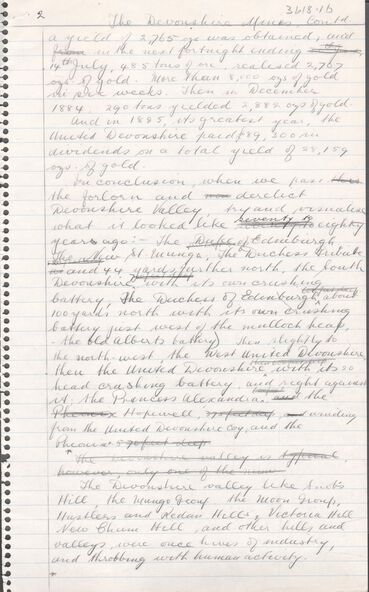 2 The Devonshire Mines Contd 3613.1b
a yield of 2,765 ozs was obtained, and
from in the next fortnight ending
14th July, 485 tons of ore, realised 2,707
ozs of gold. More than 8,000 ozs of gold
in five weeks. Then in December
1884, 290 tons yielded 2,882 ozs of gold
And in 1885, its greatest year, the
United Devonshire paid £89,300 in
dividends on a total yield of 28,159
ozs. of gold.
In conclusion, when we pass this
the forlorn and derelict
Devonshire Valley, try and visualise
what it looked like seventy to eighty
years ago:- The Duke of Edinburgh
The New St Mungo, The Duchess Tribute
and 44 yards further north, the South
Devonshire, with its own crushing
battery, The Duchess of Edinburgh, about
100 yards north with its own crushing
battery just west of the mulloch heap,
- the old Alberts battery) then slightly to
the north-west, the West United Devonshire,
then the United Devonshire, with its 20
head crushing battery, and right against
it, the Princess Alexandra. and the
Phoenix Hopewell,
from the United Devonshire Coy, and the
Phoenix
The Devonshire valley is typical,
however only one of the
The Devonshire valley like
Hill, the group the Moon Group,
Hustlers and Redan Hills, Victoria Hill
New Chum Hill, and other hills and
valleys, were once hives of industry,
and throbbing with human activity.